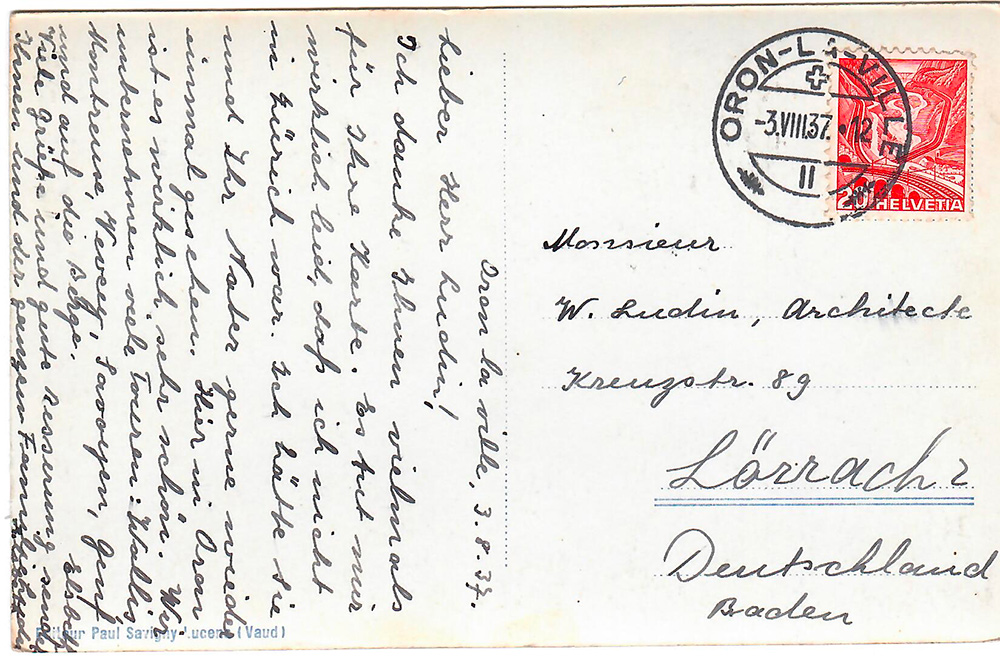 Oron la ville, 3.8.37.
Lieber Herr Ludin!
Ich danke Ihnen vielmals
für Ihre Karte. Es tut mir
wirklich leid, daß ich nicht
in Zürich war. Ich hätte Sie
und Ihr Vater gerne wieder
einmal gesehen. Hier in Oron
ist es wirklich sehr schön. Wir
unternehmen viele Touren: Wallis
Montreux, Vevey, Savoyen, Genf,
und auf die Berge.
Viele Grüße und gute Besserung sendet
Ihnen und der ganzen Familie
Elsbeth
Editeur Paul Savigny Lucens (Vaud)
ORON-LA-VILLE
-3.VIII.37.•12
II
20 HELVETIA
Monsieur
W. Ludin, Architecte
Kreuzstr. 89
Lörrach
Deutschland
Baden